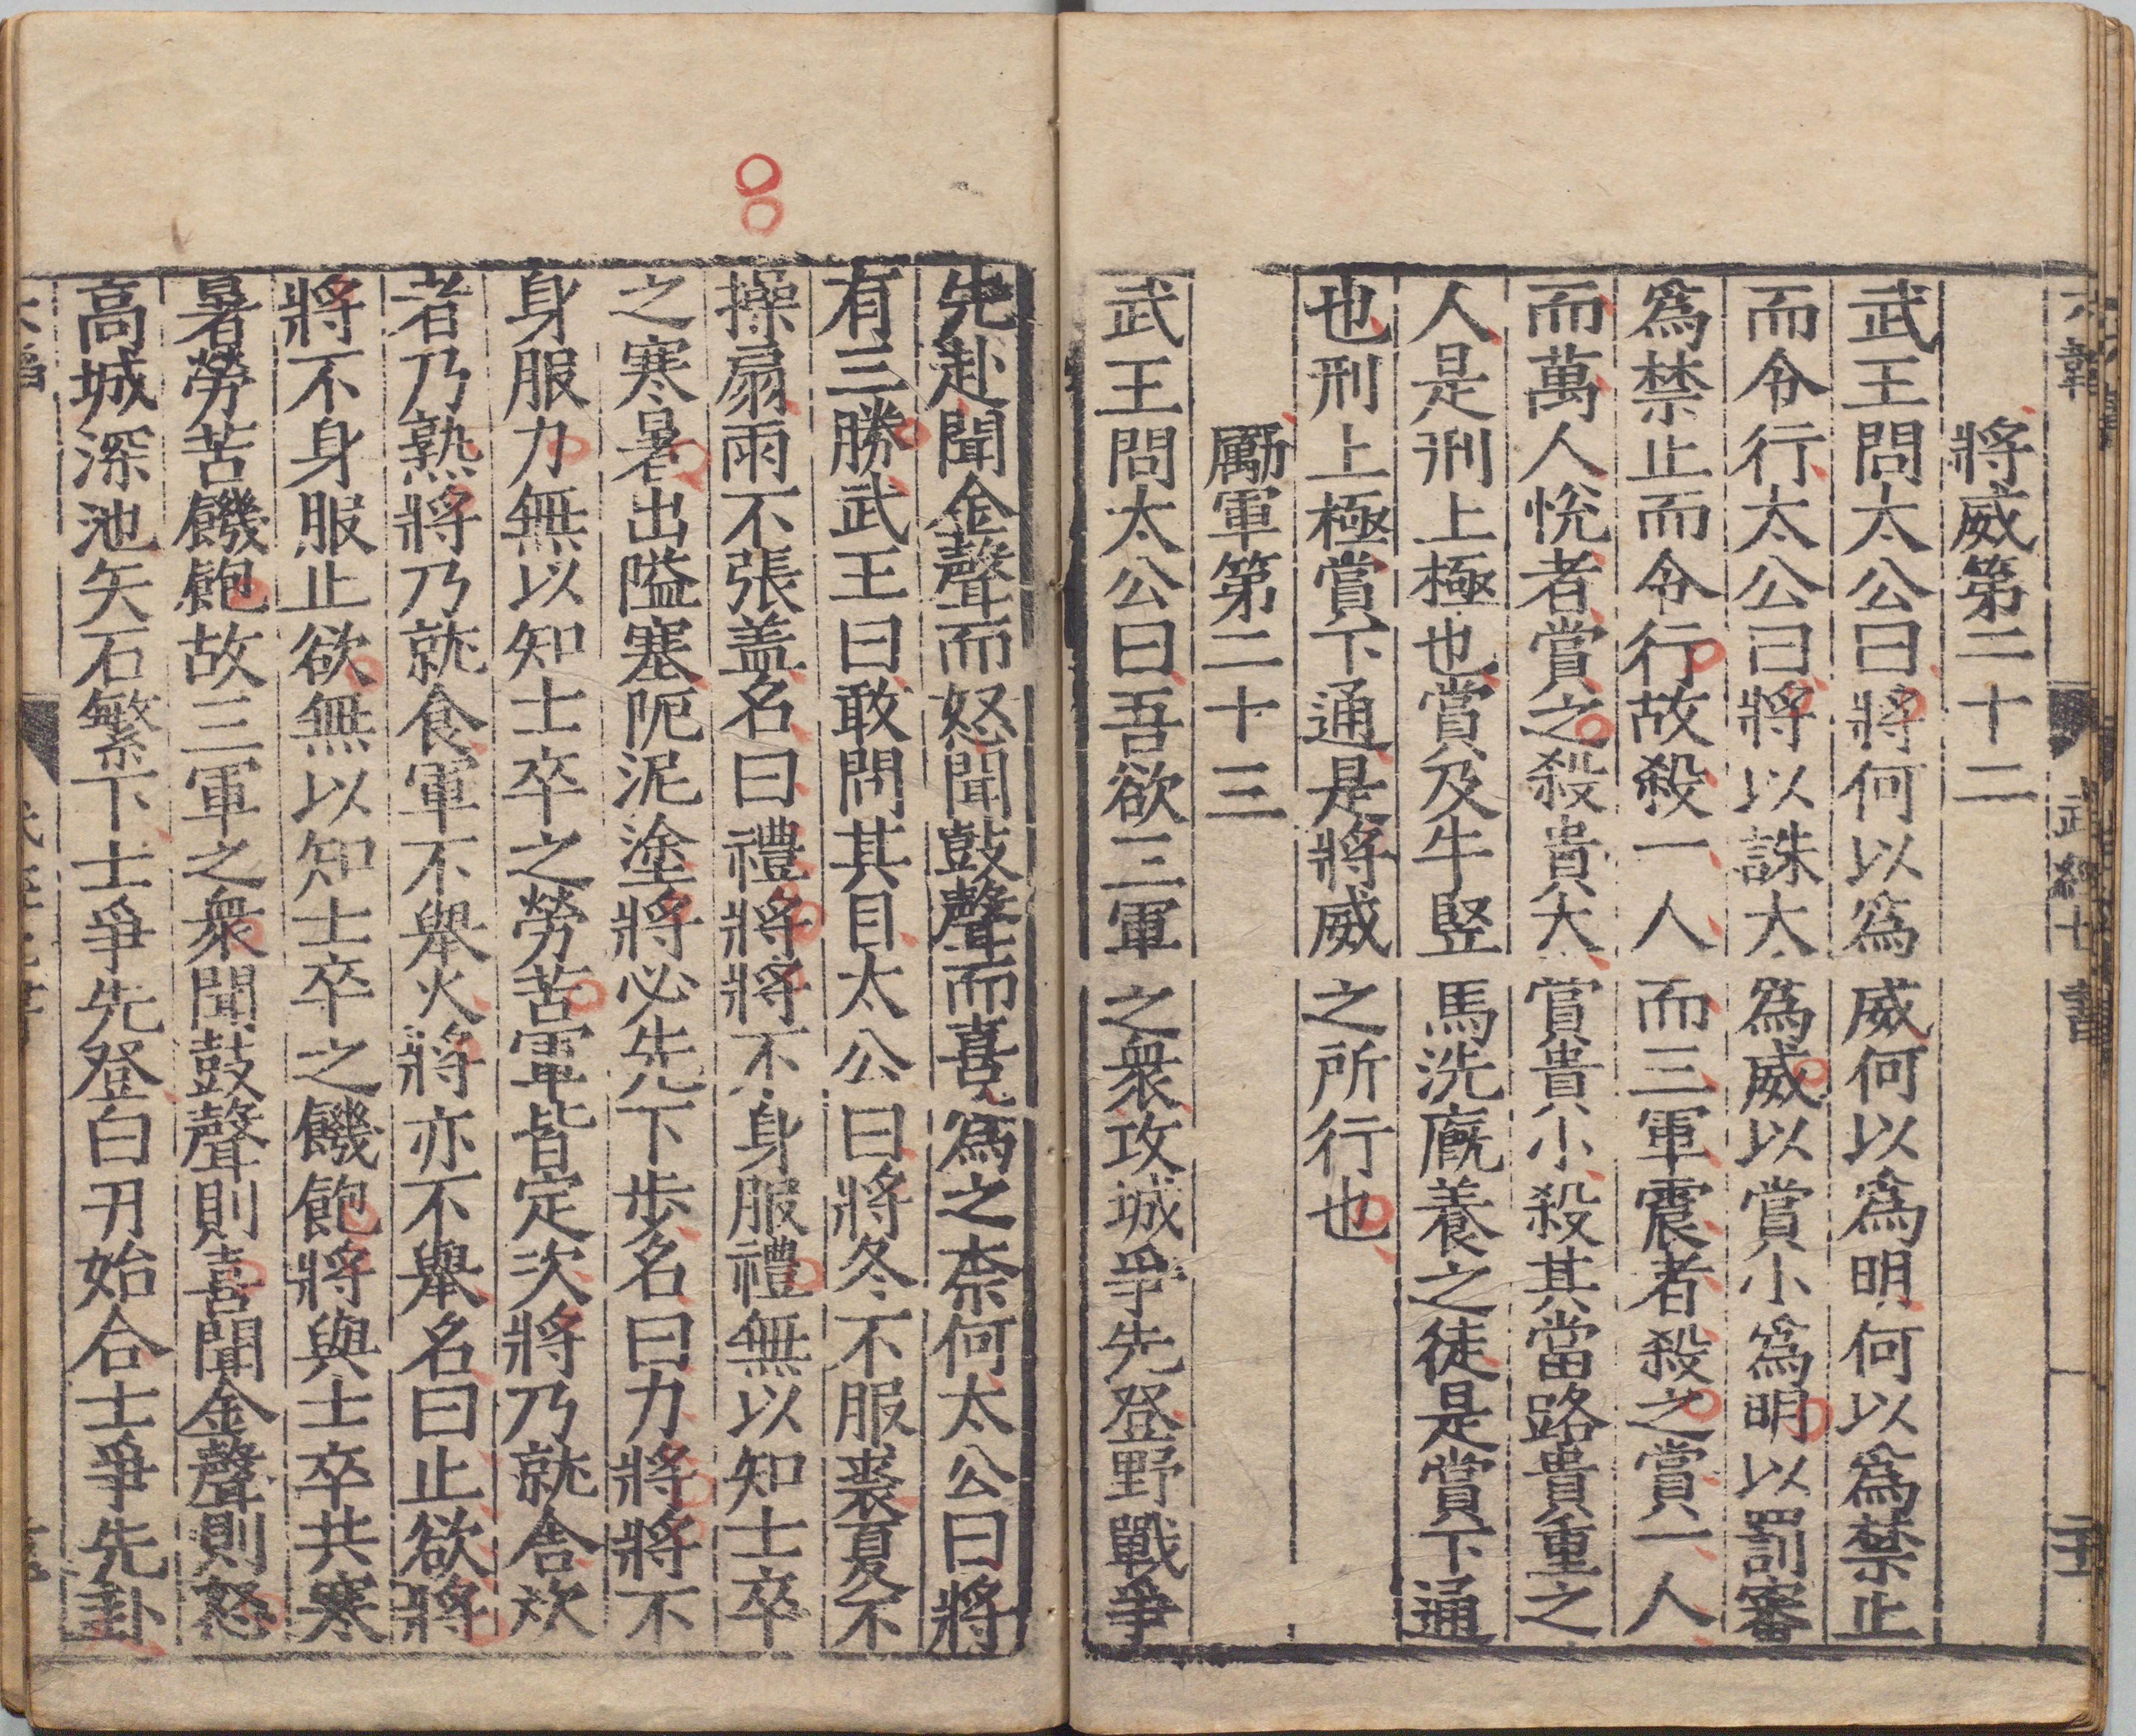 六韜 武經七書
將威第二十二
武王問太公曰將何以爲威何以爲明何以爲禁止
而令行太公曰將以誅大爲威以賞小爲明以罰審
爲禁止而令行故殺一人而三軍震者殺之賞一人
而萬人悅者賞之殺貴大賞貴小殺其當路貴重之
人是刑上極也賞及牛竪馬洗廐養之徒是賞下通
也刑上極賞下通是將威之所行也
勵軍第二十三
武王問太公曰吾欲三軍之衆攻城爭先登野戰爭
先赴聞金聲而怒聞鼓聲而喜爲之柰何太公曰將
有三勝武王曰敢問其目太公曰將冬不服裘夏不
操扇雨不張盖名曰禮將將不身服禮無以知士卒
之寒暑出隘塞阨泥塗將必先下步名曰力將將不
身服力無以知士卒之勞苦軍皆定次將乃就舍炊
者乃熟將乃就食軍不舉火將亦不舉名曰止欲將
將不身服止欲無以知士卒之饑飽將與士卒共寒
暑勞苦饑飽故三軍之衆聞鼓聲則喜聞金聲則怒
高城深池矢石繁下士爭先登白刃始合士爭先赴